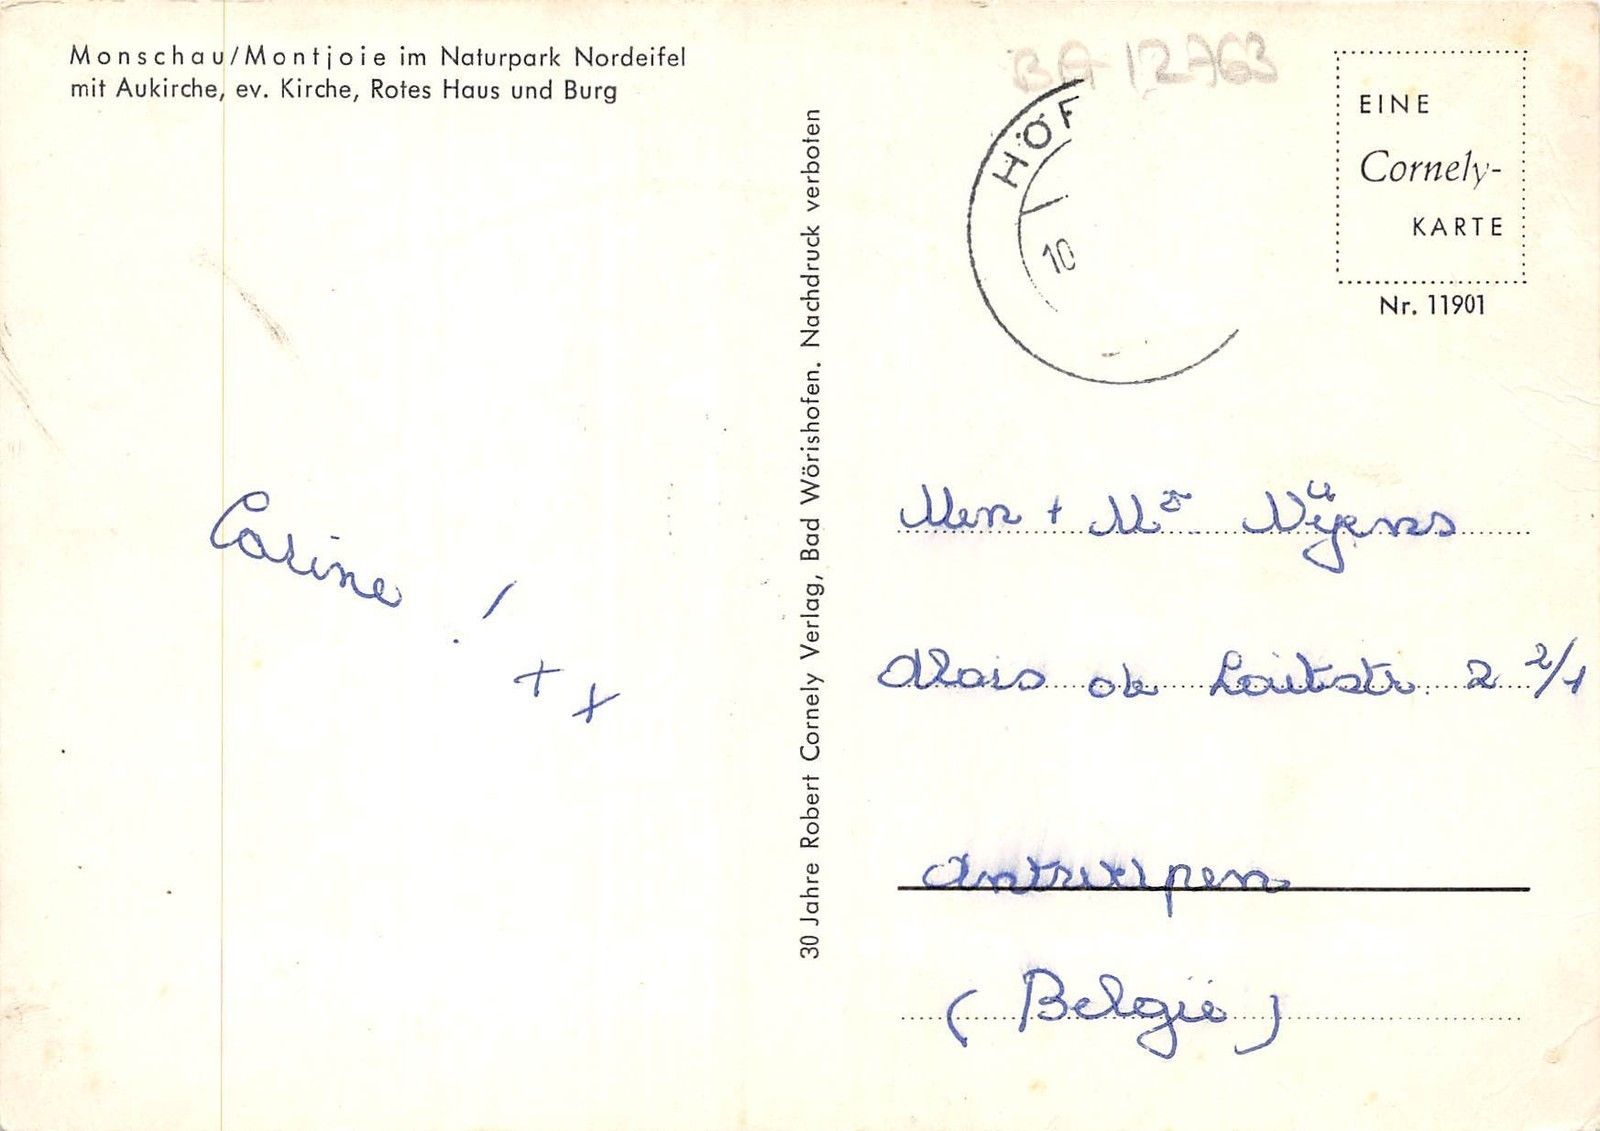 Monschau/Montjoie im Naturpark Nordeifel
mit Aukirche, ev. Kirche, Rotes Haus und Burg
Carine !
+ +
30 Jahre Robert Cornely Verlag, Bad Wörishofen. Nachdruck verboten
BA 12763
HÖF
10
EINE
Cornely-
KARTE
Nr. 11901
Men + Mr Nÿens
2 2/1
Antwerpen
(België)